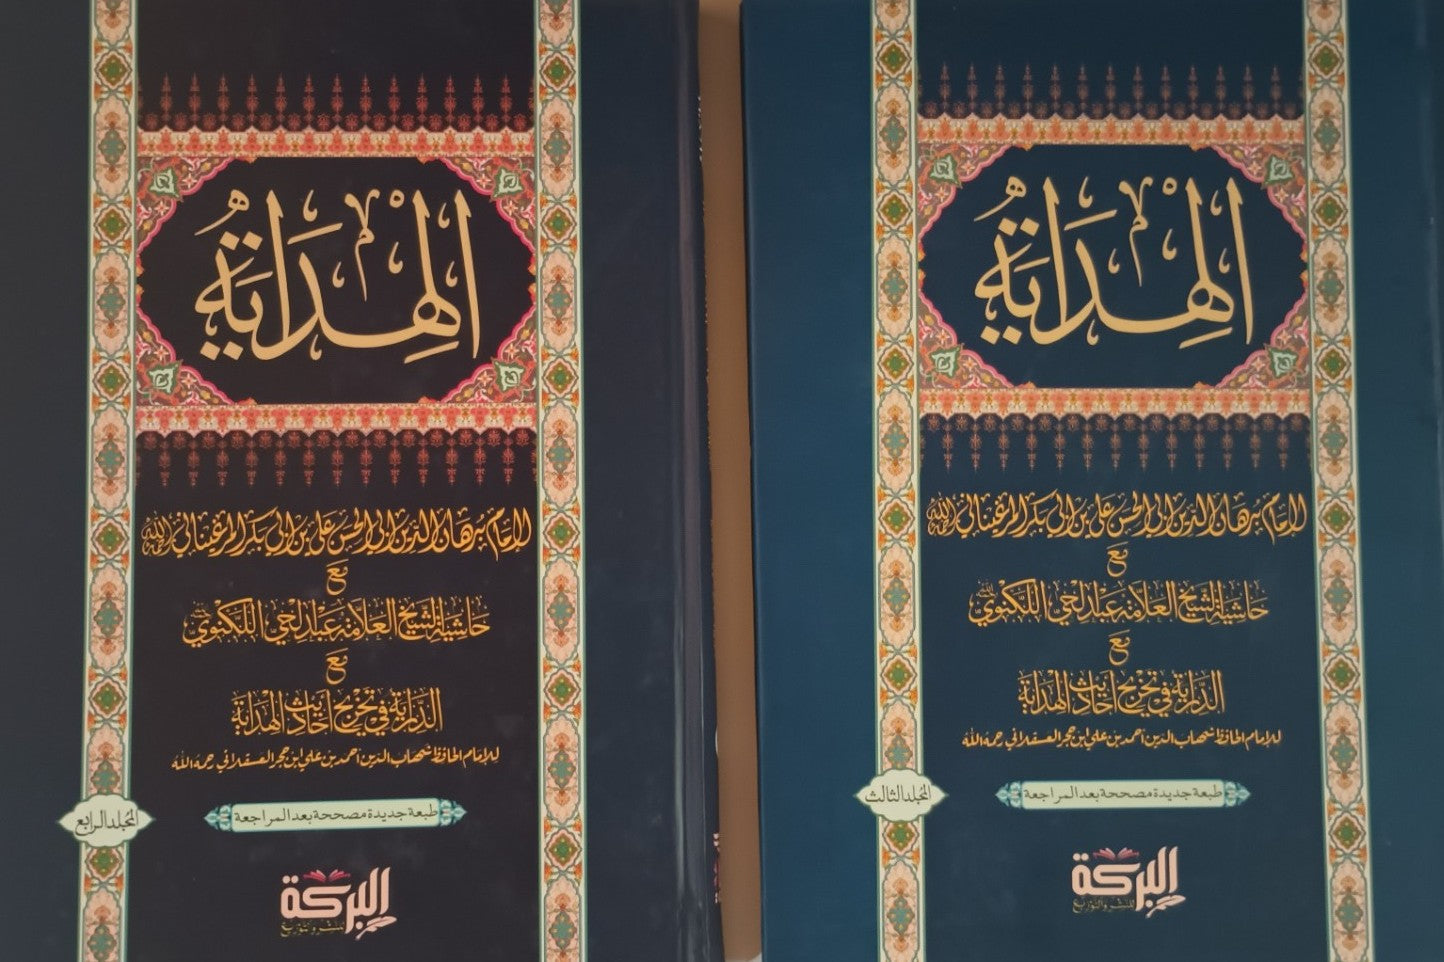 الهداية
الإمام برهان الدين أبي الحسن علي بن أبي بكر المرغيناني رحمه الله
مع
حاشية الشيخ العلامة عبد الحي اللكنوي رحمه الله
مع
الدراية في تخريج أحاديث الهداية
للإمام الحافظ شهاب الدين أحمد بن علي ابن حجر العسقلاني رحمه الله
المجلد الرابع
طبعة جديدة مصححة بعد المراجعة
البركة
للنشر والتوزيع
الهداية
الإمام برهان الدين أبي الحسن علي بن أبي بكر المرغيناني رحمه الله
مع
حاشية الشيخ العلامة عبد الحي اللكنوي رحمه الله
مع
الدراية في تخريج أحاديث الهداية
للإمام الحافظ شهاب الدين أحمد بن علي ابن حجر العسقلاني رحمه الله
المجلد الثالث
طبعة جديدة مصححة بعد المراجعة
البركة
للنشر والتوزيع